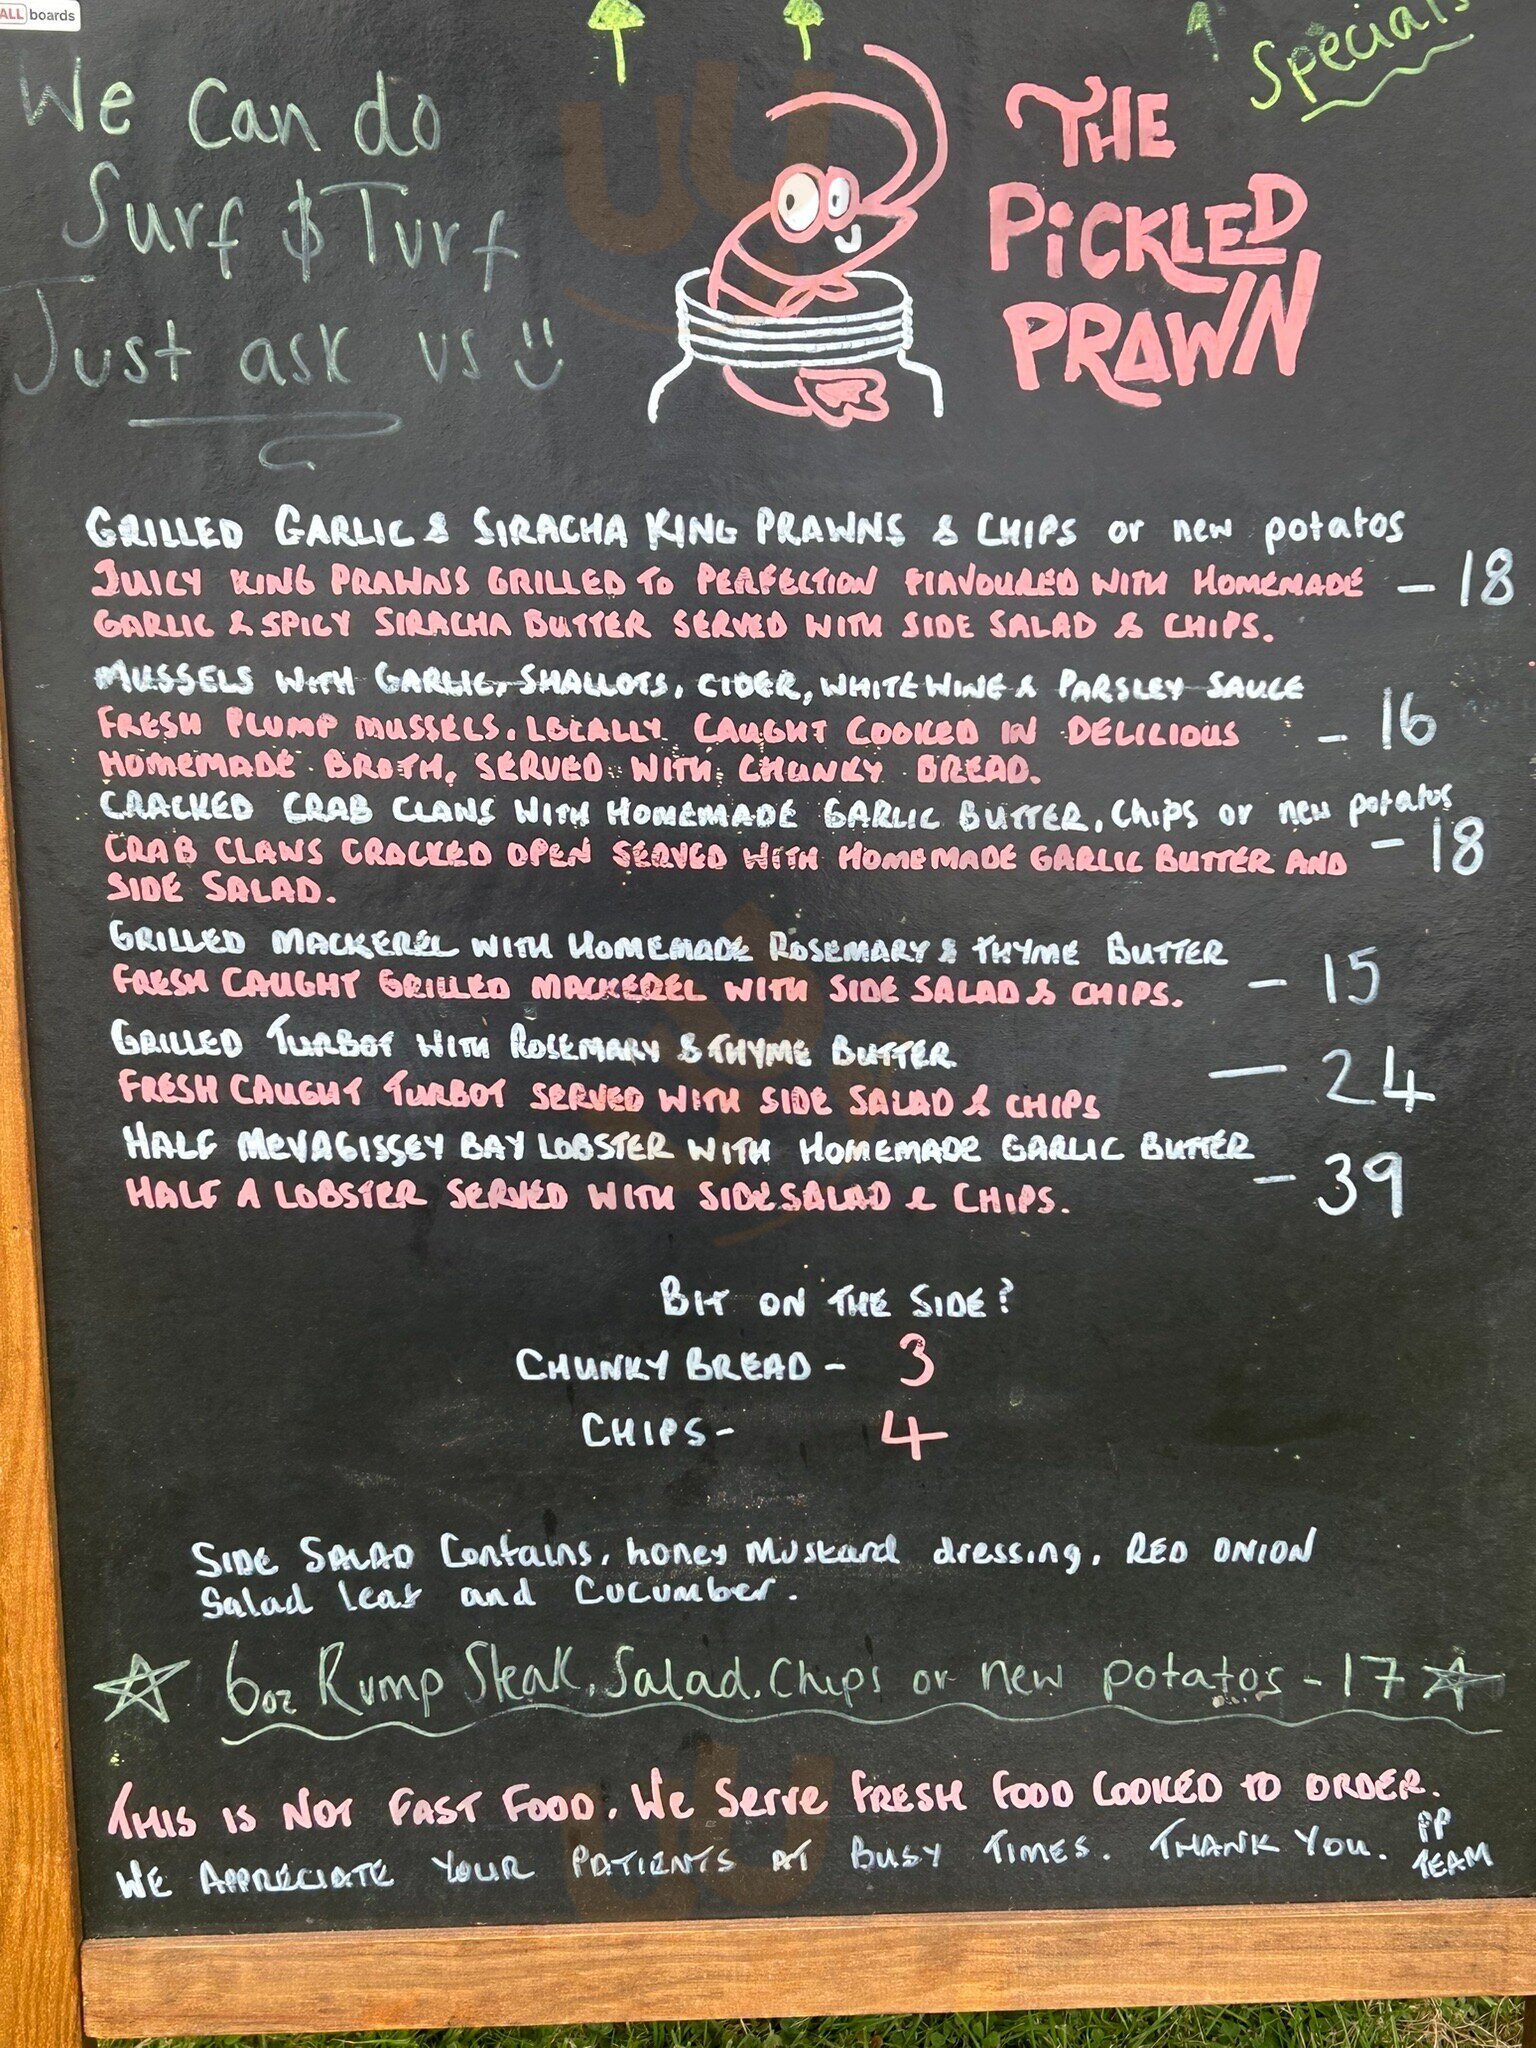 ALL boards
Specials
We can do
Surf & Turf
Just ask us
THE
PiCKLED
PRAWN
GRILLED GARLIC & SIRACHA KING PRAWNS & CHIPS or new potatos
JUICY KING PRAWNS GRILLED TO PERFECTION FLAVOURED WITH HOMEMADE - 18
GARLIC & SPICY SIRACHA BUTTER SERVED WITH SIDE SALAD & CHIPS.
MUSSELS WITH GARLIC, SHALLOTS, CIDER, WHITE WINE & PARSLEY SAUCE
FRESH PLUMP MUSSELS, LOCALLY CAUGHT COOKED IN DELICIOUS - 16
HOMEMADE BROTH, SERVED WITH CHUNKY BREAD.
CRACKED CRAB CLAWS WITH HOMEMADE GARLIC BUTTER, Chips or new potatos
CRAB CLAWS CRACKED OPEN SERVED WITH HOMEMADE GARLIC BUTTER AND - 18
SIDE SALAD.
GRILLED MACKEREL WITH HOMEMADE ROSEMARY & THYME BUTTER
FRESH CAUGHT GRILLED MACKEREL WITH SIDE SALAD & CHIPS. - 15
GRILLED TURBOT WITH ROSEMARY & THYME BUTTER
FRESH CAUGHT TURBOT SERVED WITH SIDE SALAD & CHIPS - 24
HALF MEVAGISSEY BAY LOBSTER WITH HOMEMADE GARLIC BUTTER
HALF A LOBSTER SERVED WITH SIDE SALAD & CHIPS. - 39
BIT ON THE SIDE?
CHUNKY BREAD - 3
CHIPS - 4
SIDE SALAD Contains, honey Mustard dressing, RED ONION
Salad leaf and CUCUMber.
6oz Rump Steak, Salad, Chips or new potatos - 17
THIS IS NOT FAST FOOD. We Serve FRESH FOOD COOKED TO ORDER.
WE APPRECIATE YOUR PATIENTS AT BUSY TIMES. THANK YOU. PP
TEAM